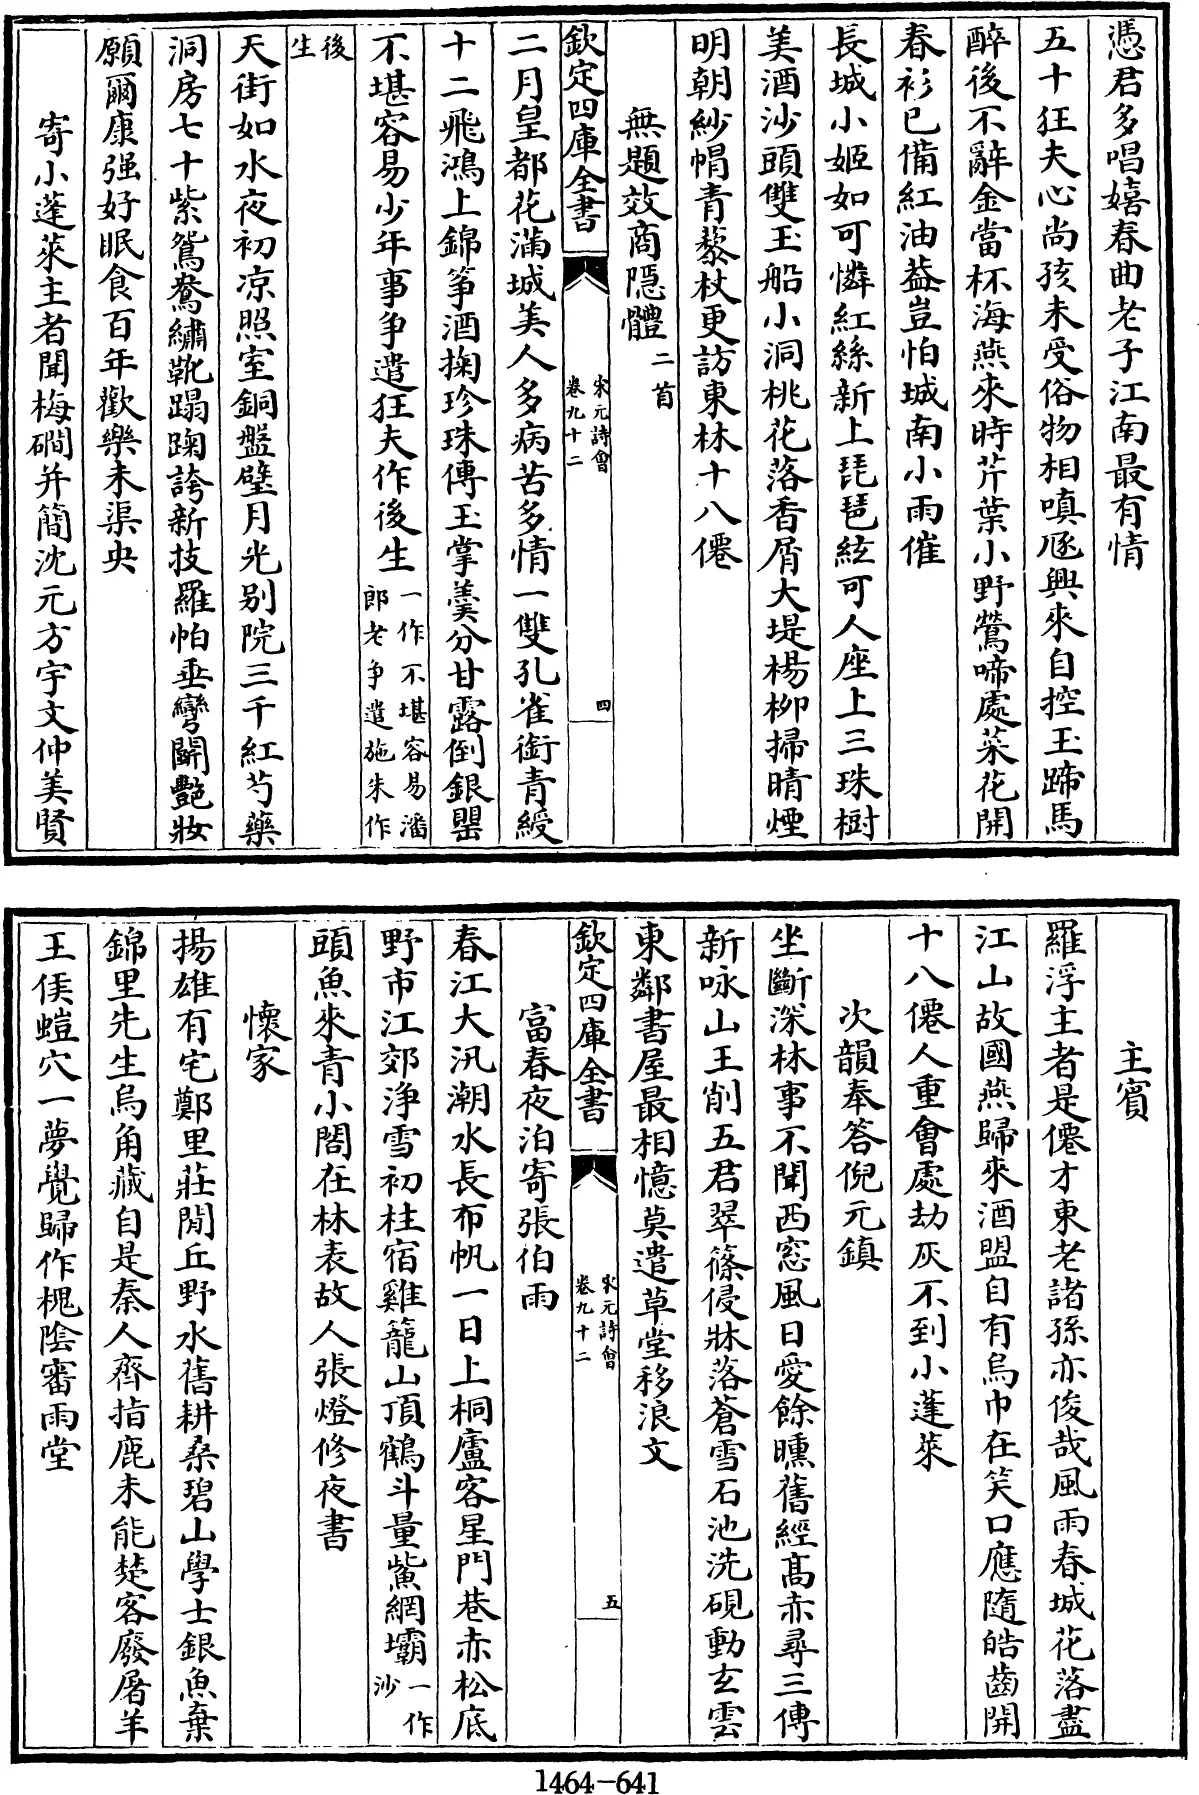 憑君多唱嬉春曲老子江南最有情
五十狂夫心尚孩未受俗物相嗔豗興來自控玉蹄馬
醉後不辭金當杯海燕來時芹葉小野鶯啼處菜花開
春衫已備紅油葢豈怕城南小雨催
長城小姬如可憐紅絲新上琵琶絃可人座上三珠樹
美酒沙頭雙玉船小洞桃花落香屑大堤楊柳掃晴煙
明朝紗帽青藜杖更訪東林十八僊
無題效商隱體二首
欽定四庫全書
宋元詩會
卷九十二
四
二月皇都花滿城美人多病苦多情一雙孔雀銜青綬
十二飛鴻上錦筝酒掬珍珠傳玉掌羮分甘露倒銀罌
不堪容易少年事争遣狂夫作後生一作不堪容易潘
郎老争遣施朱作
後
生
天街如水夜初凉照室銅盤璧月光别院三千紅芍藥
洞房七十紫鴛鴦繡靴蹋踘誇新技羅帕垂彎鬭艷妝
願爾康强好眠食百年歡樂未渠央
寄小蓬萊主者聞梅磵并簡沈元方宇文仲美賢
主賓
羅浮主者是僊才東老諸孫亦俊哉風雨春城花落盡
江山故國燕歸來酒盟自有烏巾在笑口應隨皓齒開
十八僊人重會處劫灰不到小蓬萊
次韻奉答倪元鎮
坐斷深林事不聞西窓風日愛餘曛舊經髙赤尋三傳
新咏山王削五君翠篠侵牀落蒼雪石池洗硯動玄雲
東鄰書屋最相憶莫遣草堂移浪文
欽定四庫全書
宋元詩會
卷九十二
五
富春夜泊寄張伯雨
春江大汛潮水長布帆一日上桐廬客星門巷赤松底
野市江郊浄雪初柱宿雞籠山頂鶴斗量鮆網壩一作
沙
頭魚來青小閤在林表故人張燈修夜書
懷家
揚雄有宅鄭里莊閒丘野水舊耕桑碧山學士銀魚棄
錦里先生烏角藏自是秦人齊指鹿未能楚客廢屠羊
王侯螘穴一夢覺歸作槐陰審雨堂
1464-641